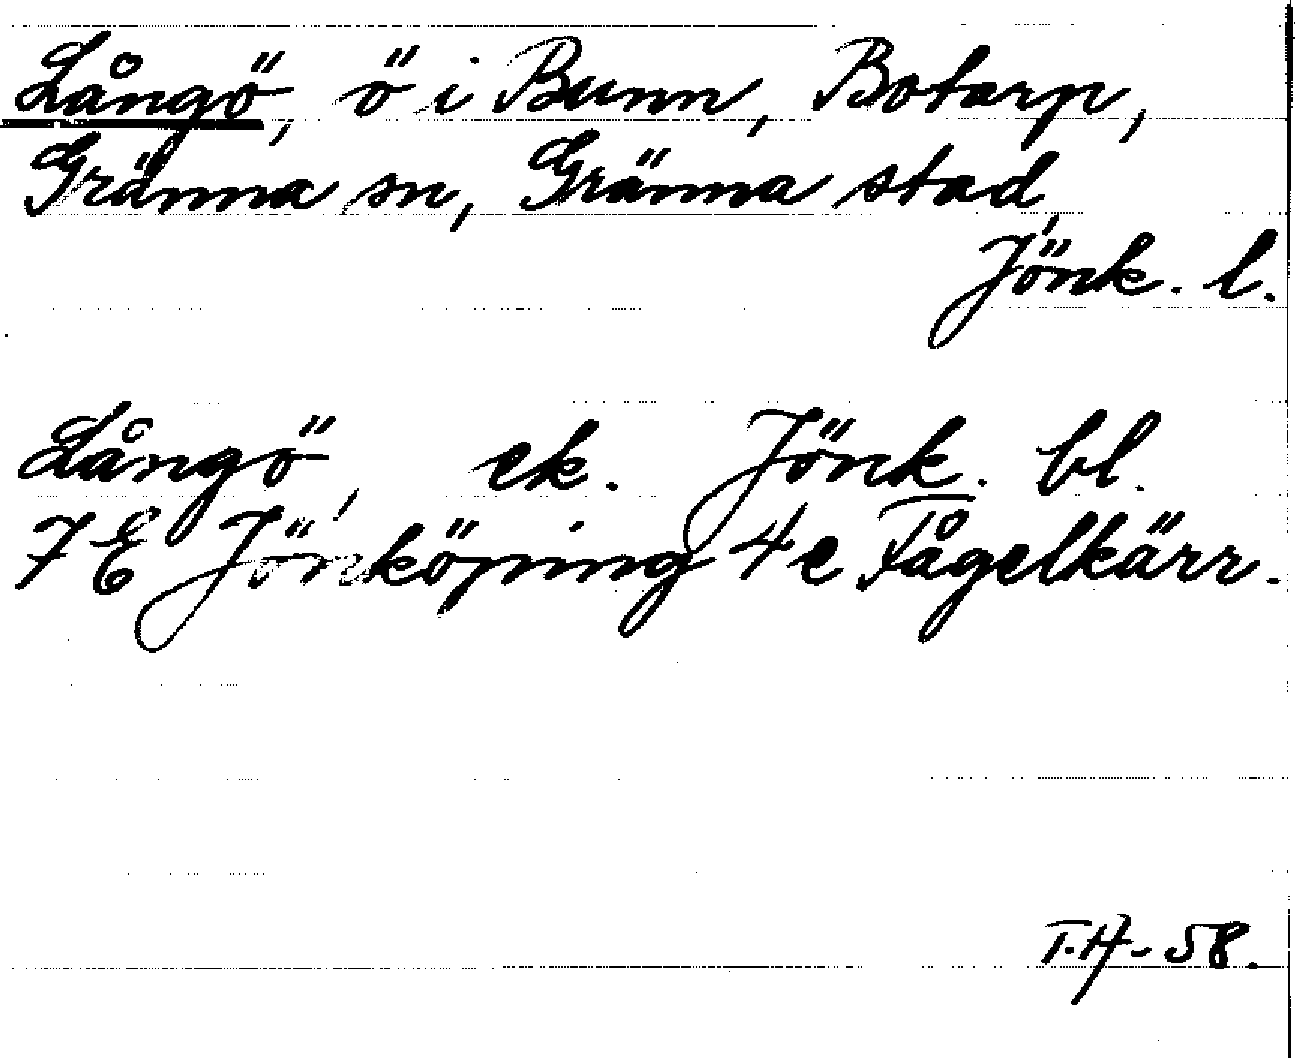 Långö, ö i Bunn, Botarp,
Gränna sn, Gränna stad,
Jönk. l.
Långö, ek. Jönk. bl.
7 E Jönköping 4 e Fågelkärr.
T.H-58.